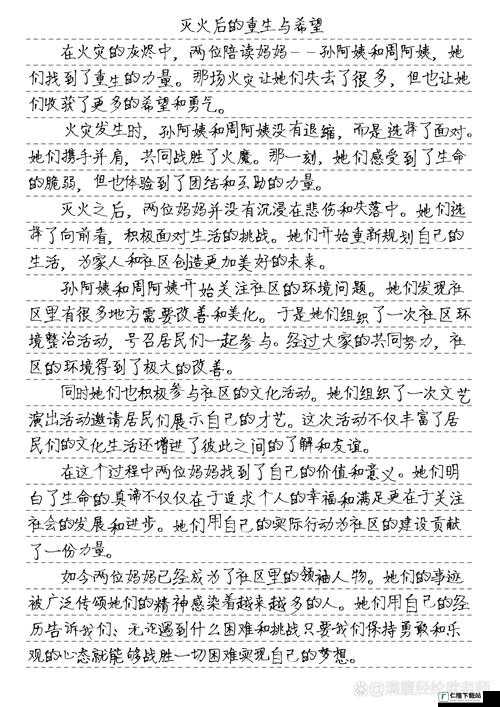 灭火后的重生与希望
在火灾的灰烬中，两位陪读妈妈--孙阿姨和周阿姨，她
们找到了重生的力量。那场火灾让她们失去了很多，但也让她
们收获了更多的希望和勇气。
火灾发生时，孙阿姨和周阿姨没有退缩，而是选择了面对。
她们携手并肩，共同战胜了火魔。那一刻，她们感受到了生命
的脆弱，但也体验到了团结和互助的力量。
灭火之后，两位妈妈并没有沉浸在悲伤和失落中。她们选
择了向前看，积极面对生活的挑战。她们开始重新规划自己的
生活，为家人和社区创造更加美好的未来。
孙阿姨和周阿姨开始关注社区的环境问题。她们发现社
区里有很多地方需要改善和美化。于是她们组织了一次社区环
境整治活动，号召居民们一起参与。经过大家的共同努力，社
区的环境得到了极大的改善。
同时她们也积极参与社区的文化活动。她们组织了一次文艺
演出活动邀请居民们展示自己的才艺。这次活动不仅丰富了居
民们的文化生活还增进了彼此之间的了解和友谊。
在这个过程中两位妈妈找到了自己的价值和意义。她们明
白了生命的真谛不仅仅在于追求个人的幸福和满足更在于关注
社会的发展和进步。她们用自己的实际行动为社区的建设贡献
了一份力量。
如今两位妈妈已经成为了社区里的领袖人物。她们的事迹
被广泛传颂她们的精神感染着越来越多的人。她们用自己的经
历告诉我们：无论遇到什么困难和挑战只要我们保持勇敢和乐
观的心态就能够战胜一切困难实现自己的梦想。
仁榷下载站